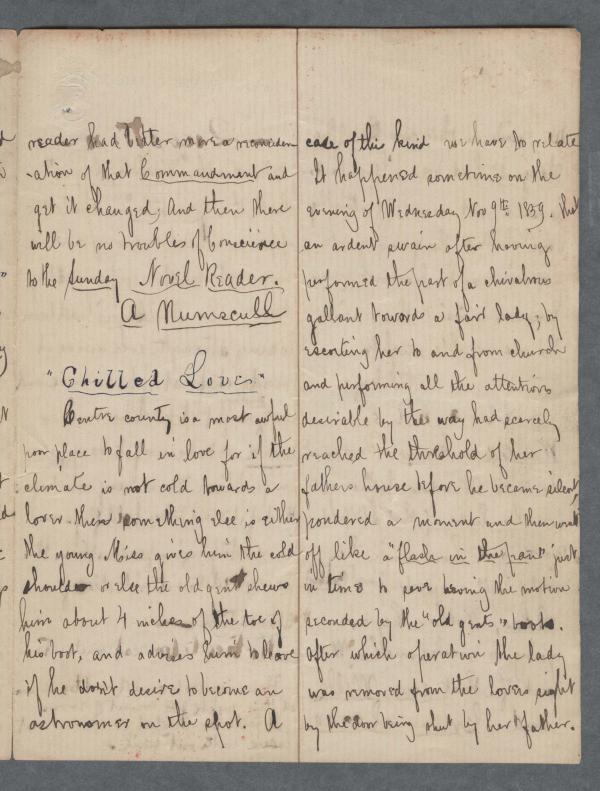 reader had better move a reconsider
-ation of that Commandment and
get it changed, And then there
will be no troubles of Conscience
to the Sunday Novel Reader.
A Numscull
"Chilled Love"
Centre county is a most awful
poor place to fall in love for if the
climate is not cold towards a
lover then something else is either
the young Miss gives him the cold
shoulder or else the old gent shews
him about 4 inches of the toe of
his boot, and advises him to leave
if he dosit desire to become an
astronomer on the spot. A
case of this kind we have to relate
It happened sometime on the
evening of Wednesday Nov 9th 1859. that
an ardent swain after having
performed the part of a chivalrous
gallant towards a fair lady; by
escorting her to and from church
and performing all the attentions
desirable by the way had scarcely
reached the threshold of her
fathers house before he became silent,
pondered a moment and then went
off like a "flash in the pan" just
in time to save having the motion
seconded by the "old gents" boots.
After which operation the lady
was removed from the lovers sight
by the door being shut by her father.